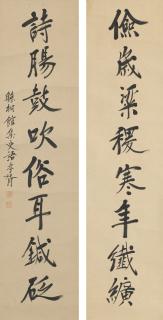 儉歲粱稷寒年纖纊
詩腸鼓吹俗耳鍼砭
柯館集史語李